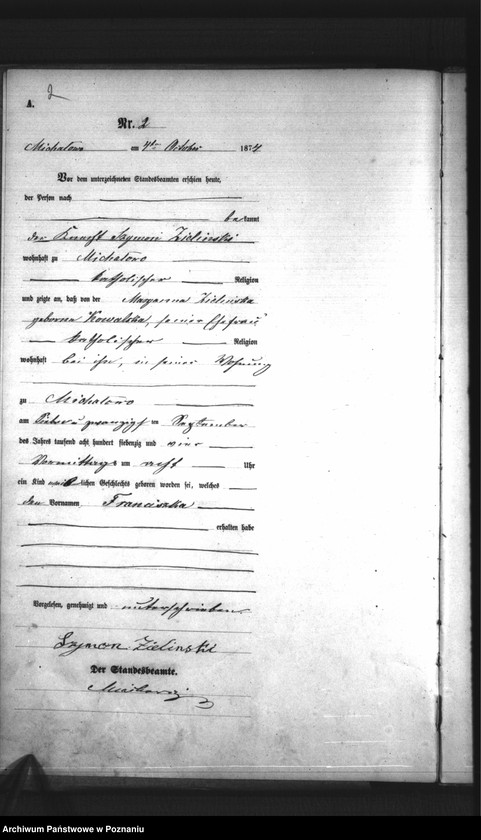 2
A.
Nr. 2
Michalowo am 4ten October 1874
Vor dem unterzeichneten Standesbeamten erschien heute,
der Person nach
bekannt
der Knecht Szymon Zielinski
wohnhaft zu Michalowo
katholischer Religion
und zeigte an, daß von der Maryanna Zielinska
geborene Kowalska, seiner Ehefrau
katholischer Religion
wohnhaft bei ihm, in seiner Wohnung
zu Michalowo
am Sieben u zwanzigst en September
des Jahrs tausend acht hundert siebenzig und vier
Vormittags um acht Uhr
ein Kind weiblichen Geschlechts geboren worden sei, welches
den Vornamen Franciszka
erhalten habe
Vorgelesen, genehmigt und unterschrieben
Szymon Zielinski
Der Standesbeamte.
Archiwum Państwowe w Poznaniu